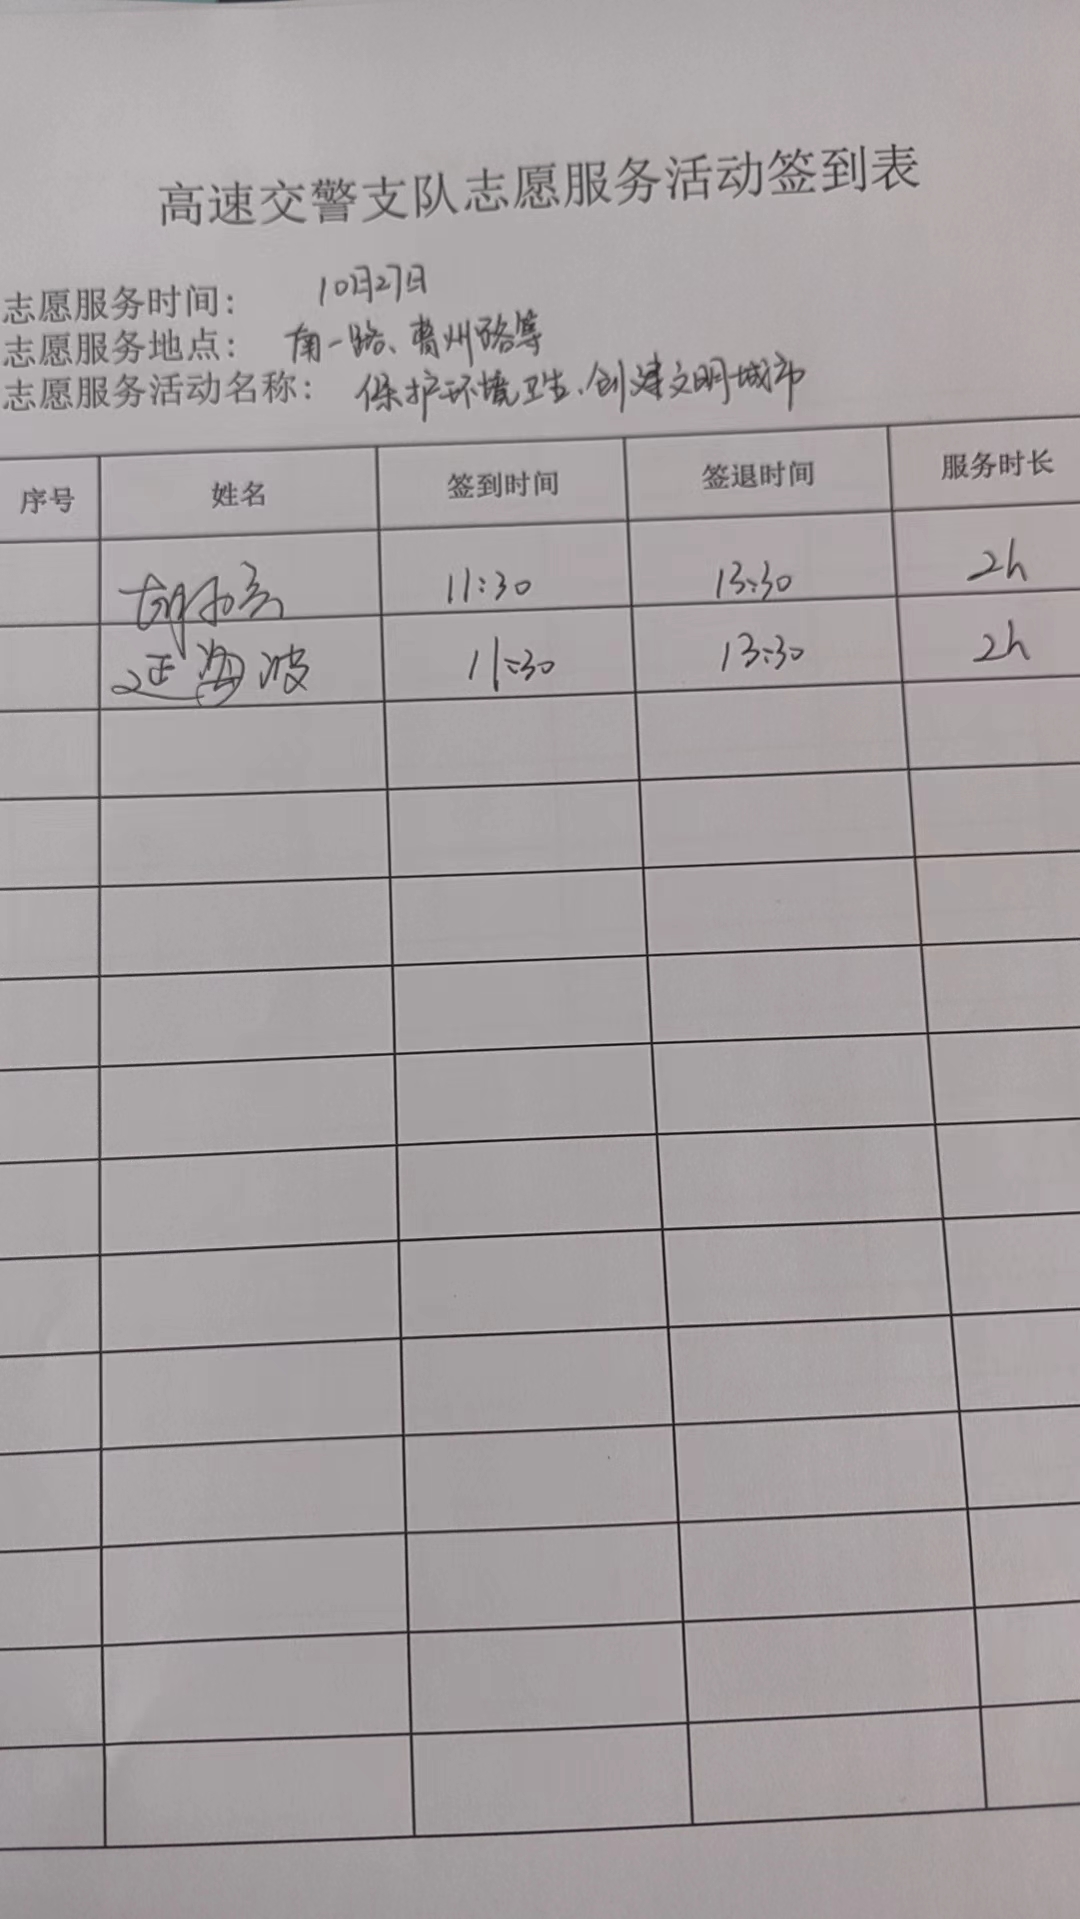 高速交警支队志愿服务活动签到表
志愿服务时间： 10月27日
志愿服务地点： 南一路、曹州路等
志愿服务活动名称： 保护环境卫生、创建文明城市
序号 姓名 签到时间 签退时间 服务时长
11:30 13:30 2h
延海波 11:30 13:30 2h